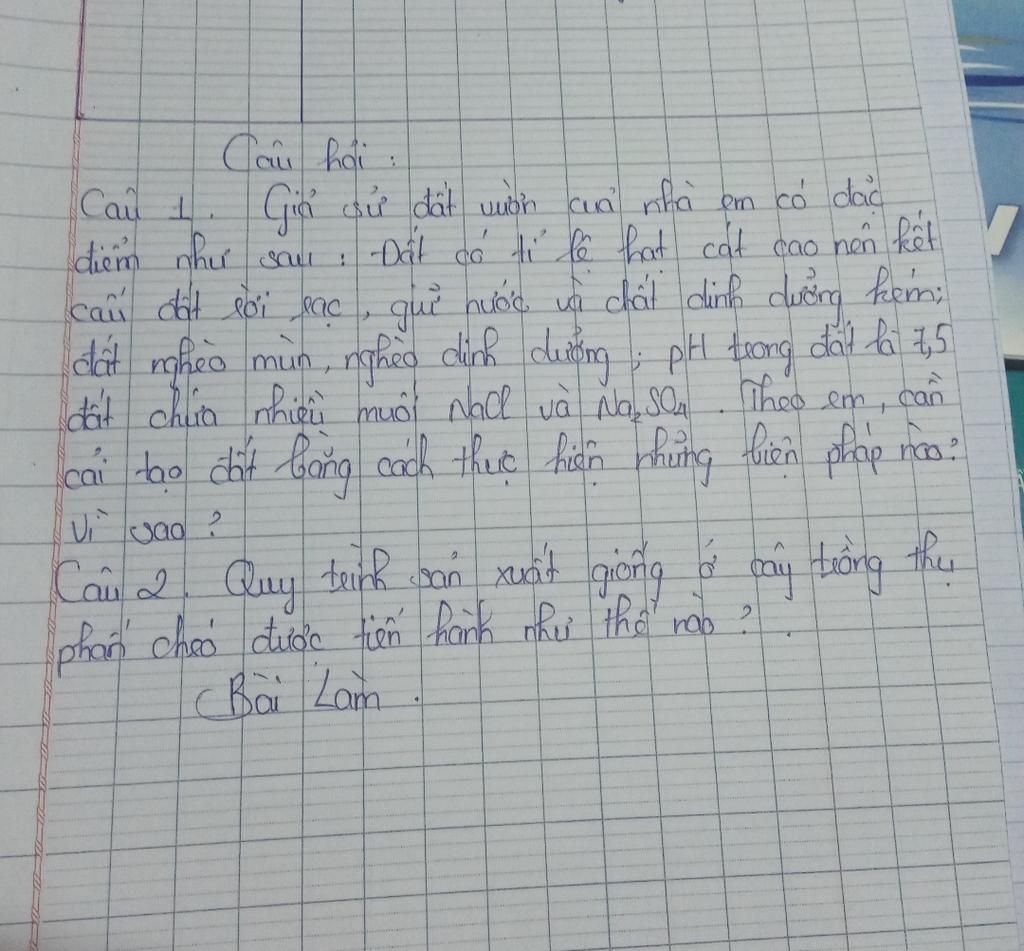 Câu hỏi :
Câu 1. Giả sử đất vườn của nhà em có đặc
điểm như sau : Đất có tỉ lệ hạt cát cao nên kết
cấu đất rời rạc, giữ nước và chất dinh dưỡng kém;
đất nghèo mùn, nghèo dinh dưỡng; pH trong đất là 7,5
đất chứa nhiều muối NaCl và Na2SO4. Theo em, cần
cải tạo đất bằng cách thực hiện những biện pháp nào?
Vì sao?
Câu 2. Quy trình sản xuất giống ở cây trồng thụ
phấn chéo được tiến hành như thế nào?
Bài Làm.